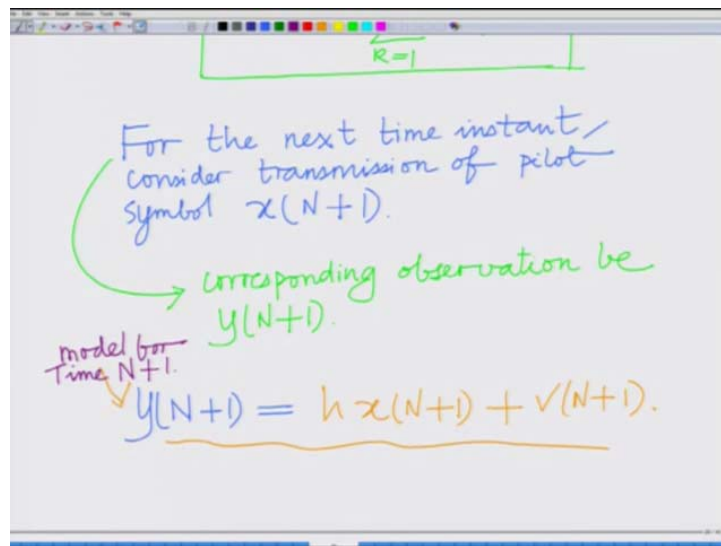 k=1
For the next time instant,
consider transmission of pilot
symbol x(N+1).
corresponding observation be
y(N+1).
model for
Time N+1.
y(N+1) = h x(N+1) + V(N+1).